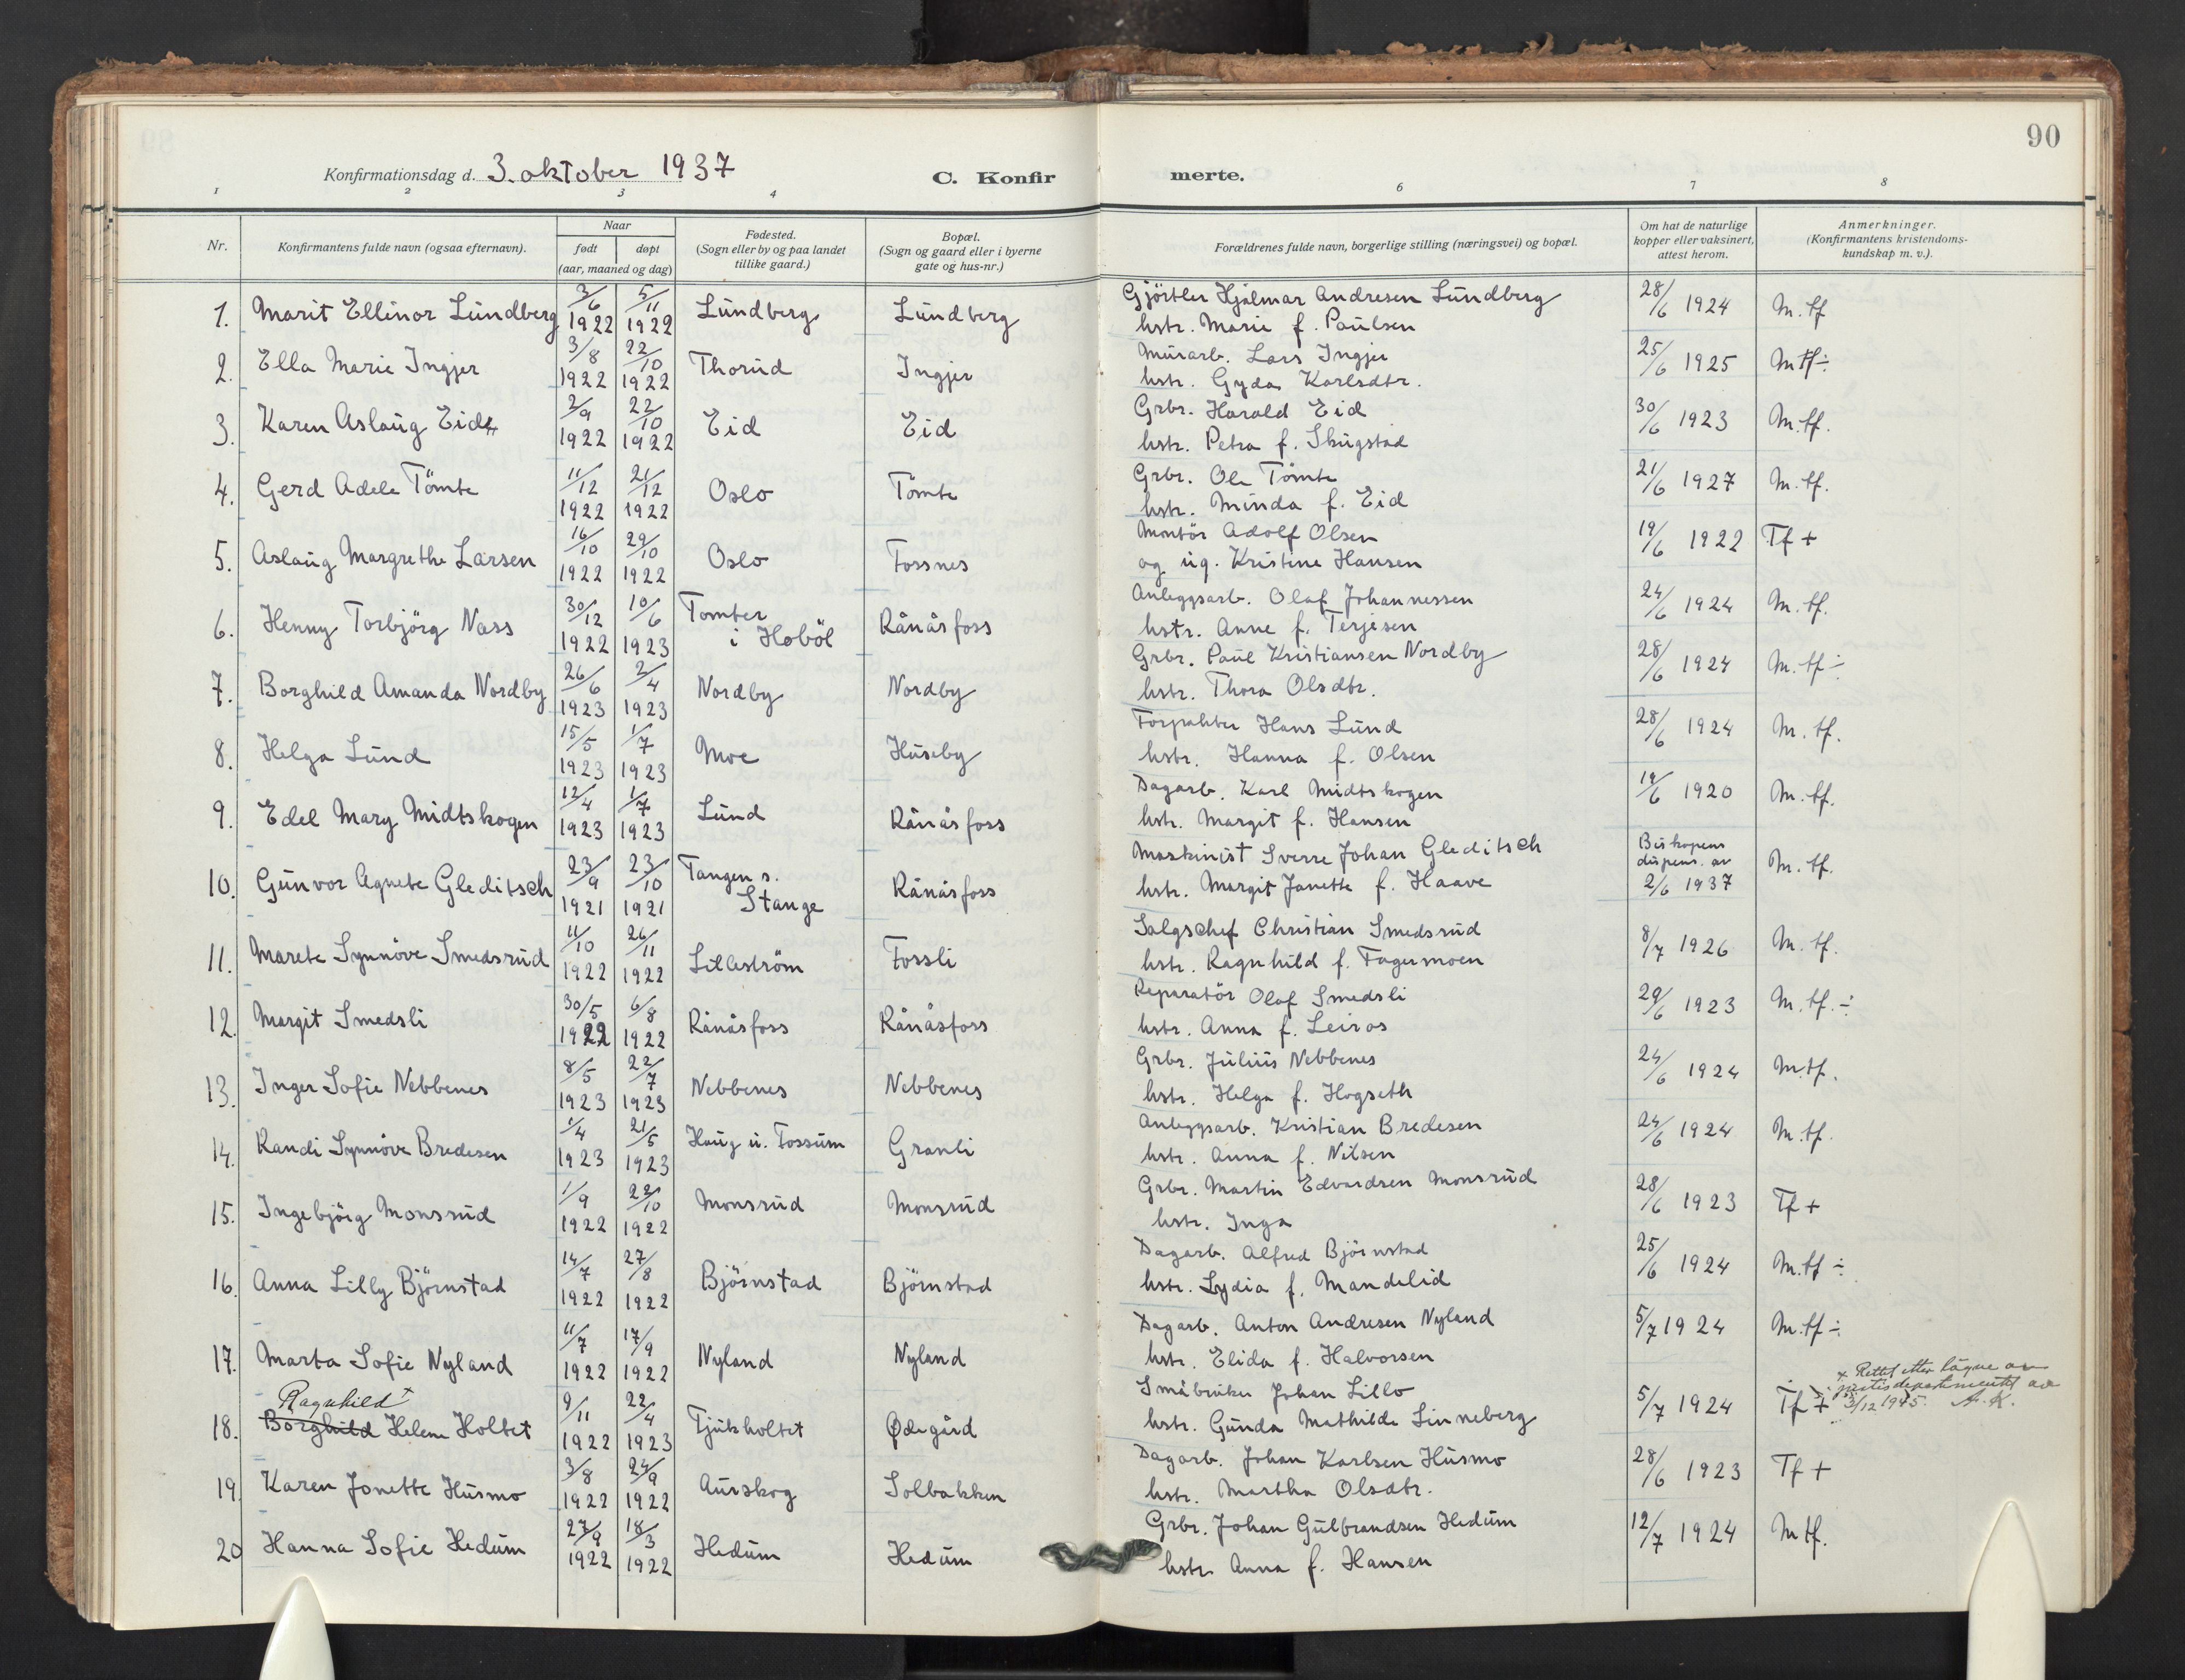 90
Konfirmationsdag d. 3. oktober 1937 C. Konfirmerte.
1 2 3 4 6 7 8
Nr. Konfirmantens fulde navn (ogsaa efternavn). Naar født døpt (aar, maaned og dag) Fødested. (Sogn eller by og paa landet tillike gaard.) Bopæl. (Sogn og gaard eller i byerne gate og hus-nr.) Forældrenes fulde navn, borgerlige stilling (næringsvei) og bopæl. Om hat de naturlige kopper eller vaksinert, attest herom. Anmerkninger. (Konfirmantens kristendoms-kundskap m. v.).
1. Marit Ellinor Lundberg 3/6 1922 5/11 1922 Lundberg Lundberg Gjörtler Hjalmar Andresen Lundberg hstr. Marie f. Paulsen 28/6 1924 M. tf
2. Ella Marie Ingjer 3/8 1922 22/10 1922 Thorud Ingjer Murarb. Lars Ingjer hstr. Gyda Karlsdtr. 25/6 1925 M tf ÷
3. Karen Aslaug Eid 2/9 1922 22/10 1922 Eid Eid Grbr. Harald Eid hstr. Petra f. Skugstad 30/6 1923 M. tf.
4. Gerd Adele Tömte 11/12 1922 21/12 1922 Oslo Tömte Grbr. Ole Tömte hstr. Minda f. Eid 21/6 1927 M. tf.
5. Aslaug Margrethe Larsen 16/10 1922 29/10 1922 Oslo Fossnes Montör Adolf Olsen og ug. Kristine Hansen 19/6 1922 Tf +
6. Henny Torbjörg Næss 30/12 1922 10/6 1923 Tomter i Hobøl Rånåsfoss Anleggsarb. Olaf Johannessen hstr. Anne f. Terjesen 24/6 1924 M. tf.
7. Borghild Amanda Nordby 26/6 1923 2/4 1923 Nordby Nordby Grbr. Paul Kristiansen Nordby hstr. Thora Olsdtr. 28/6 1924 M. tf ÷
8. Helga Lund 15/5 1923 1/7 1923 Moe Huseby Forpakter Hans Lund hstr. Hanna f. Olsen 28/6 1924 M. tf.
9. Edel Mary Midtskogen 12/4 1923 1/7 1923 Lund Rånåsfoss Dagarb. Karl Midtskogen hstr. Margit f. Hansen 19/6 1920 M. tf.
10. Gunvor Agnete Gleditsch 23/9 1921 23/10 1921 Tangen s. Stange Rånåsfoss Maskinist Sverre Johan Gleditsch hstr. Margit Janette f. Haave Biskopens dispens. av 2/6 1937 M. tf.
11. Marete Synnöve Smedsrud 11/10 1922 26/11 1922 Lilleström Fossli Salgschef Christian Smedsrud hstr. Ragnhild f. Fagermoen 8/7 1926 M. tf.
12. Margit Smedsli 30/5 1922 6/8 1922 Rånåsfoss Rånåsfoss Reparatör Olaf Smedsli hstr. Anna f. Leiros 29/6 1923 M. tf. ÷
13. Inger Sofie Nebbenes 8/5 1923 22/7 1923 Nebbenes Nebbenes Grbr. Julius Nebbenes hstr. Helga f. Hogseth 24/6 1924 M.tf.
14. Randi Synnöve Bredesen 1/4 1923 21/5 1923 Haug u. Fossum Granli Anleggsarb. Kristian Bredesen hstr. Anna f. Nilsen 24/6 1924 M. tf.
15. Ingebjörg Monsrud 1/9 1922 22/10 1922 Monsrud Monsrud Grbr. Martin Edvardsen Monsrud hstr. Inga 28/6 1923 Tf +
16. Anna Lilly Björnstad 14/7 1922 27/8 1922 Björnstad Björnstad Dagarb. Alfred Björnstad hstr. Lydia f. Mandelid 25/6 1924 M. tf ÷
17. Marta Sofie Nyland 11/7 1922 17/9 1922 Nyland Nyland Dagarb. Anton Andresen Nyland hstr. Elida f. Halvorsen 5/7 1924 M. tf ÷
Ragnhild +
18. Borghild Helene Holtet 9/11 1922 22/4 1923 Tjukholtet Ødegård Småbruker Johan Lillo hstr. Gunda Mathilde Linneberg 5/7 1924 Tf + x Rettet etter justisdepartementet av 3/12 1945. A. K.
19. Karen Jonette Husmo 3/8 1922 24/9 1922 Aurskog Solbakken Dagarb. Johan Karlsen Husmo hstr. Martha Olsdtr. 28/6 1923 Tf +
20 Hanna Sofie Hedum 27/9 1922 18/3 1922 Hedum Hedum Grbr. Johan Gulbrandsen Hedum hstr. Anna f. Hansen 12/7 1924 M tf.